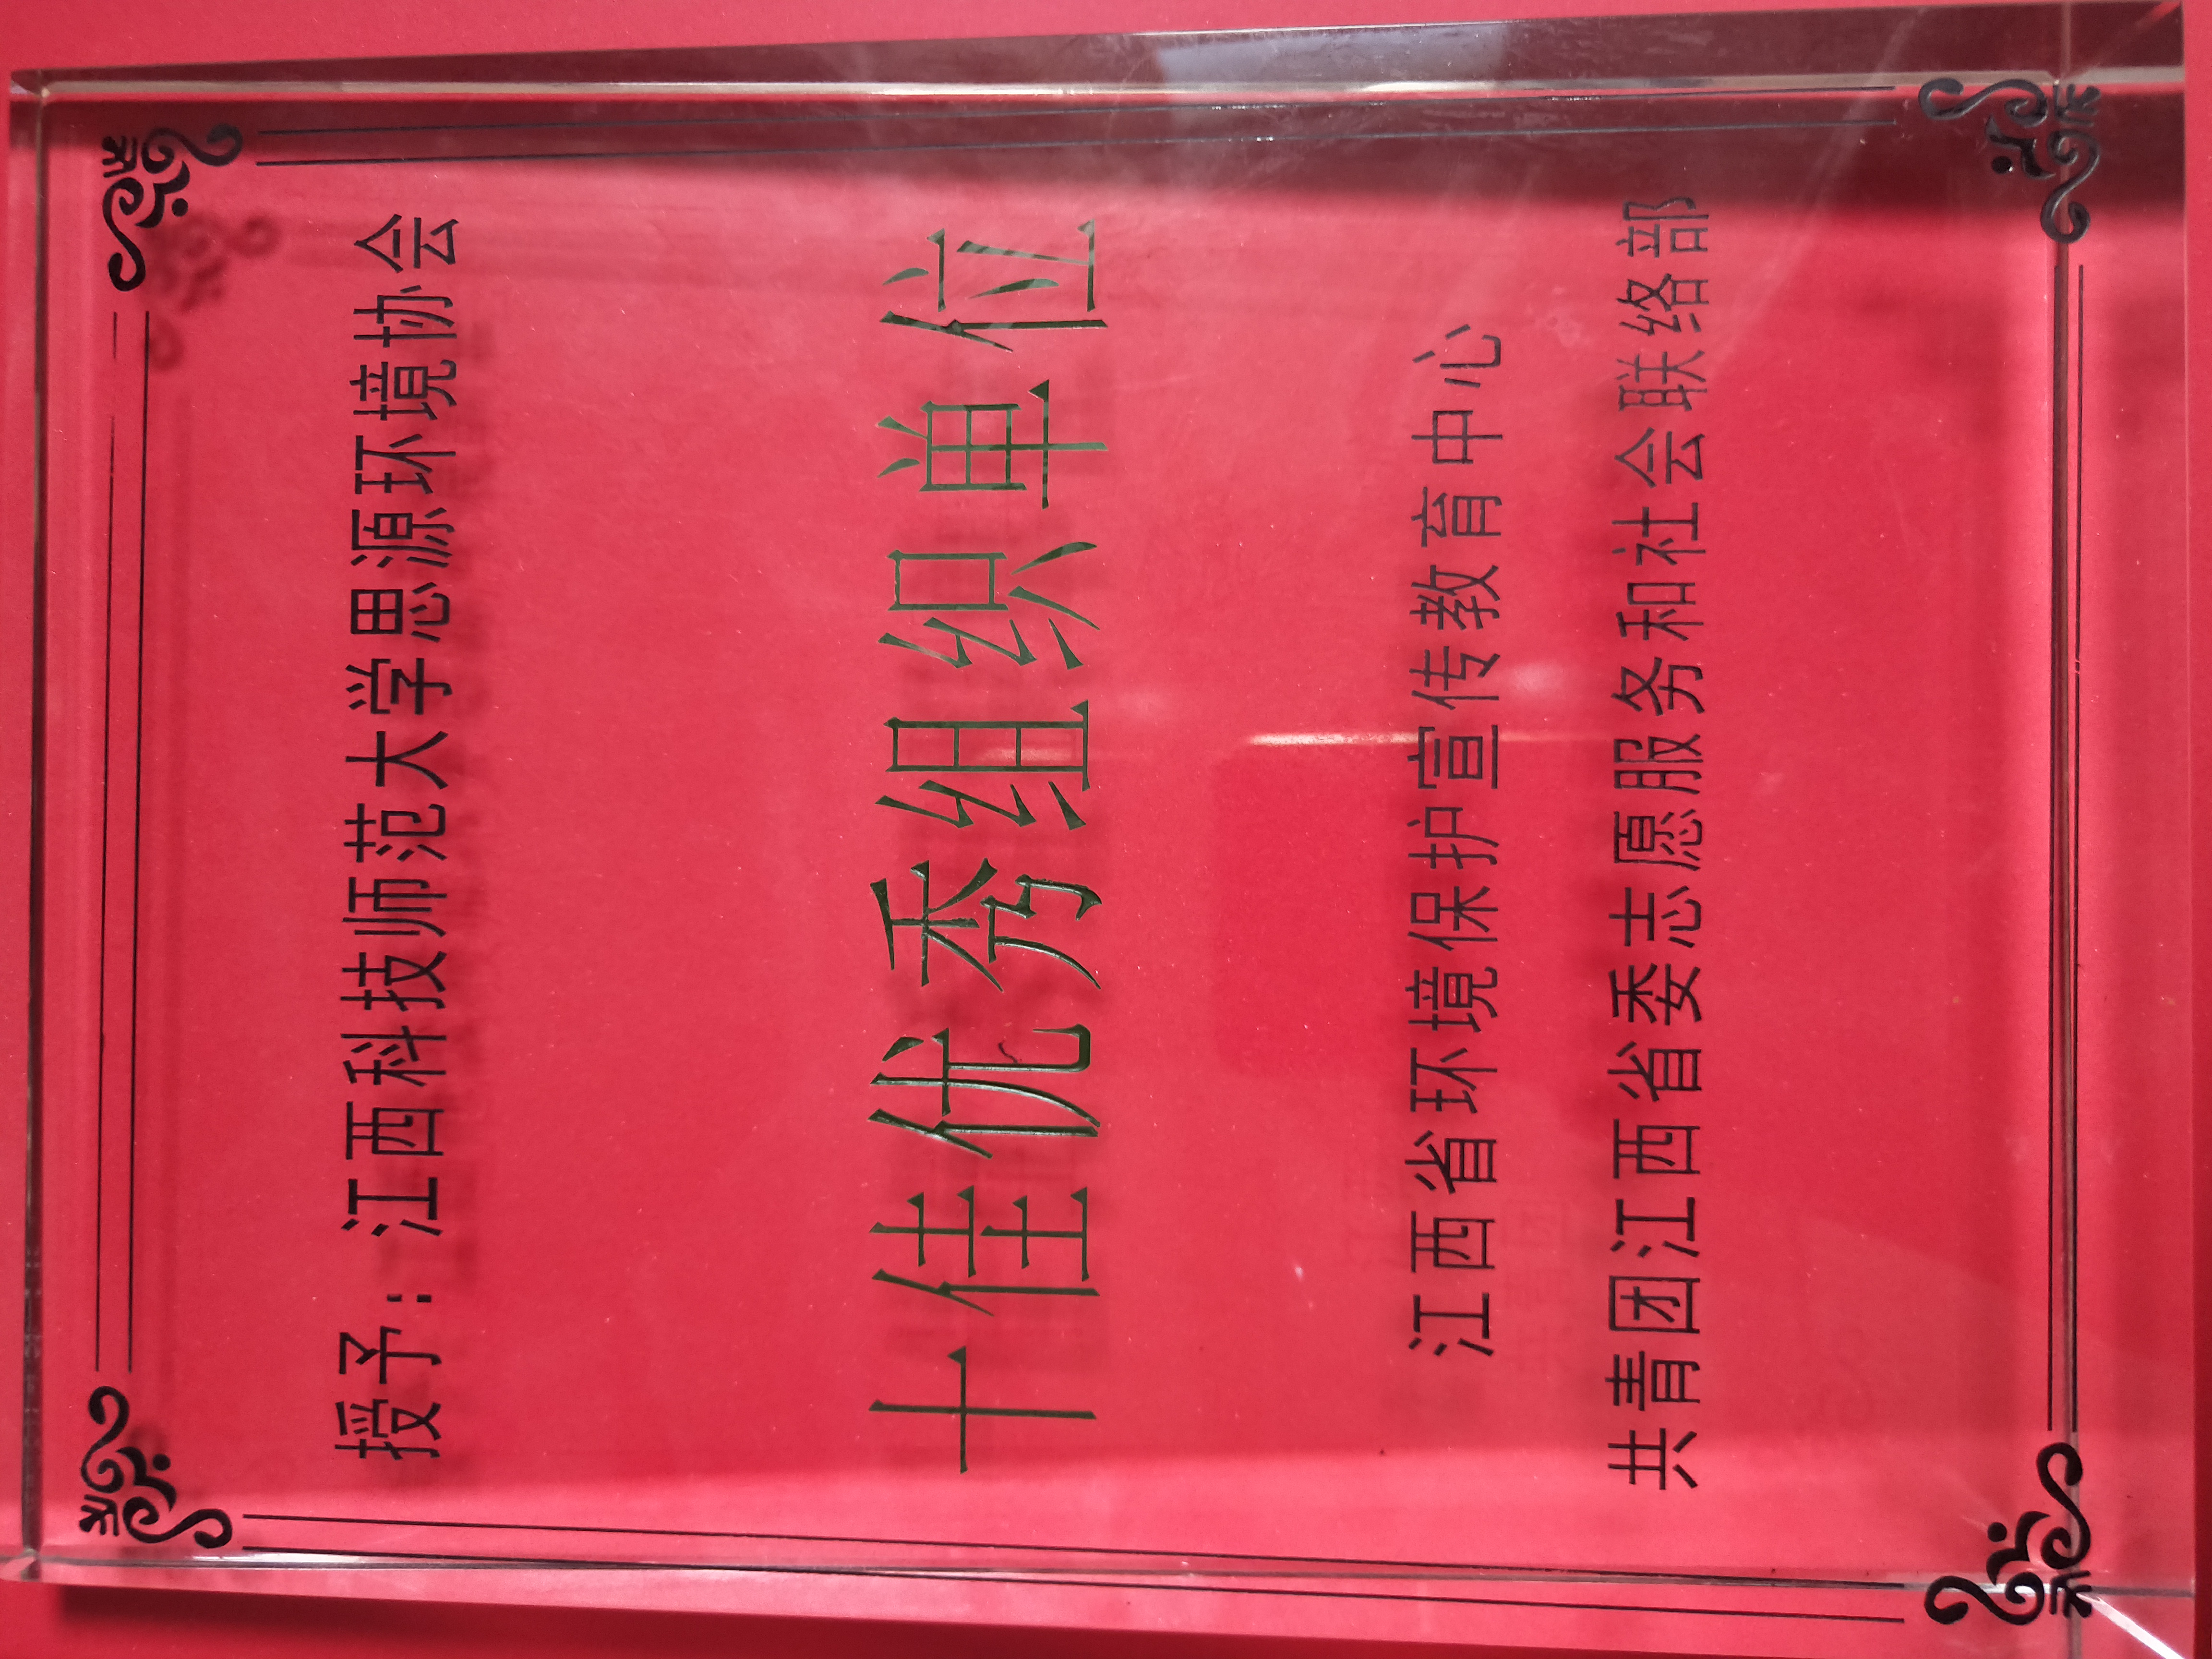 授予：江西科技师范大学思源环境协会
十佳优秀组织单位
江西省环境保护宣传教育中心
共青团江西省委志愿服务和社会联络部